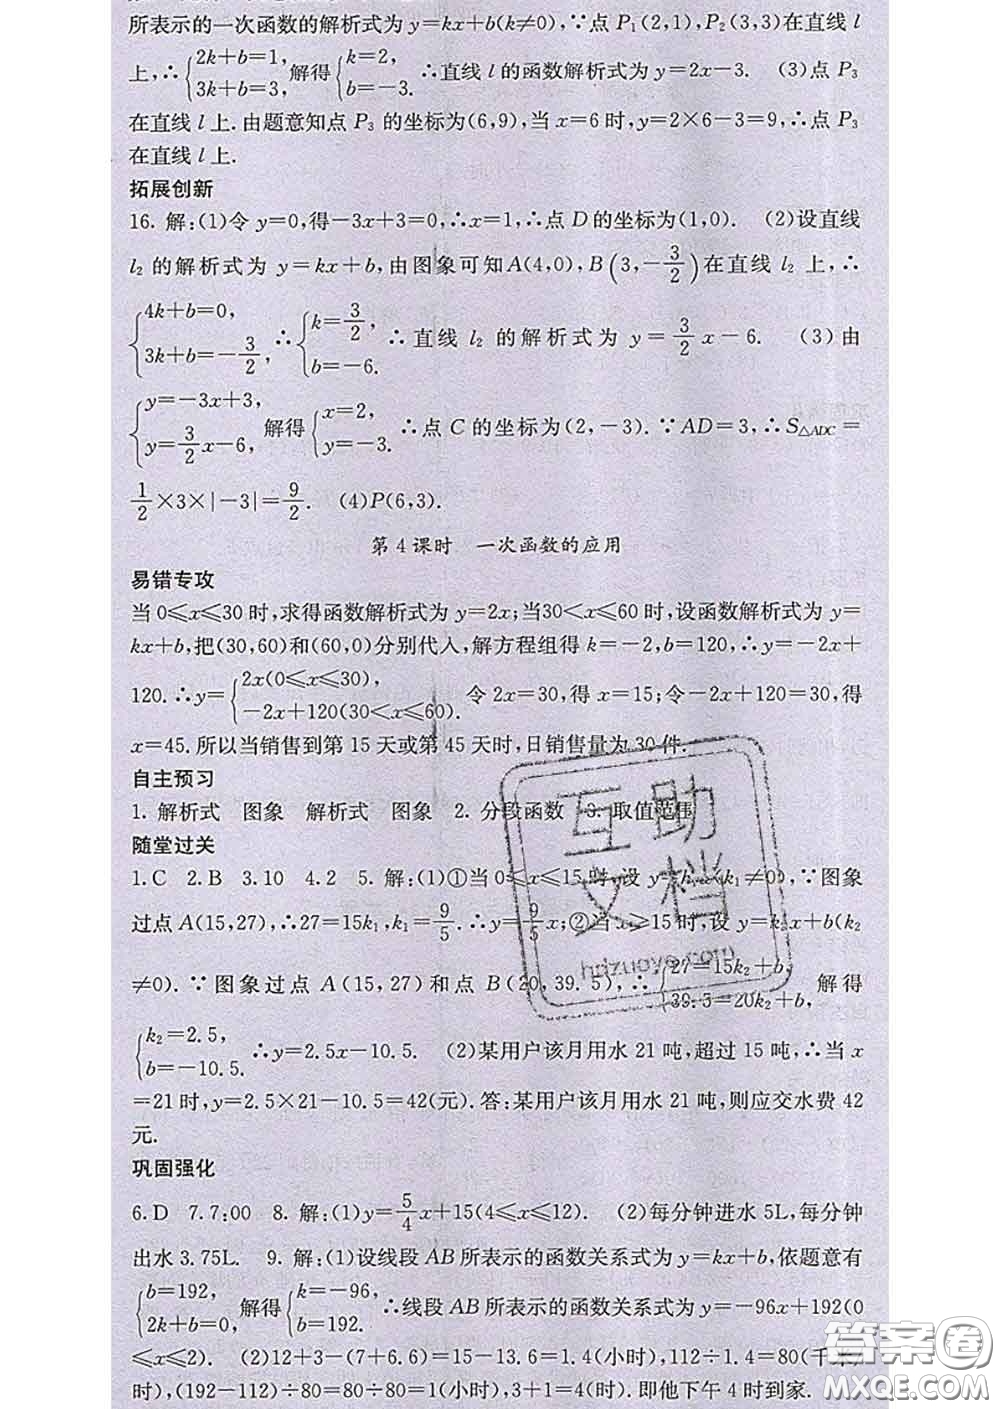 所表示的一次函数的解析式为y=kx+b(k≠0),∵点P₁(2,1),P₂(3,3)在直线l
上,∴{2k+b=1, 3k+b=3, 解得{k=2, b=-3. ∴直线l的函数解析式为y=2x-3. (3)点P₃
在直线l上.由题意知点P₃的坐标为(6,9),当x=6时,y=2×6-3=9,∴点P₃
在直线l上.
拓展创新
16. 解:(1)令y=0,得-3x+3=0,∴x=1,∴点D的坐标为(1,0). (2)设直线
l₂的解析式为y=kx+b,由图象可知A(4,0),B(3,-3/2)在直线l₂上,∴
{4k+b=0, 3k+b=-3/2, ∴{k=3/2, b=-6. ∴直线l₂的解析式为y=3/2x-6. (3)由
{y=-3x+3, y=3/2x-6, 解得{x=2, y=-3. ∴点C的坐标为(2,-3).∵AD=3,∴S△ADC=
1/2×3×|-3|=9/2. (4)P(6,3).
第4课时 一次函数的应用
易错专攻
当0≤x≤30时,求得函数解析式为y=2x;当30<x≤60时,设函数解析式为y=
kx+b,把(30,60)和(60,0)分别代入,解方程组得k=-2,b=120,∴y=-2x+
120.∴y={2x(0≤x≤30), -2x+120(30<x≤60). 令2x=30,得x=15;令-2x+120=30,得
x=45.所以当销售到第15天或第45天时,日销售量为30件.
自主预习
1. 解析式 图象 解析式 图象 2. 分段函数 3. 取值范围
随堂过关
1.C 2.B 3.10 4.2 5. 解:(1)①当0≤x≤15时,设y=k₁x(k₁≠0),∵图象
过点A(15,27),∴27=15k₁,k₁=9/5.∴y=9/5x;②当x≥15时,设y=k₂x+b(k₂
≠0).∵图象过点A(15,27)和点B(20,39.5),∴{27=15k₂+b, 39.5=20k₂+b, 解得
{k₂=2.5, b=-10.5. ∴y=2.5x-10.5. (2)某用户该月用水21吨,超过15吨,∴当x
=21时,y=2.5×21-10.5=42(元).答:某用户该月用水21吨,则应交水费42
元.
巩固强化
6.D 7.7:00 8. 解:(1)y=5/4x+15(4≤x≤12). (2)每分钟进水5L,每分钟
出水3.75L. 9. 解:(1)设线段AB所表示的函数关系式为y=kx+b,依题意有
{b=192, 2k+b=0; 解得{k=-96, b=192. ∴线段AB所表示的函数关系式为y=-96x+192(0
≤x≤2). (2)12+3-(7+6.6)=15-13.6=1.4(小时),112÷1.4=80(千米/
时),(192-112)÷80=80÷80=1(小时),3+1=4(时).即他下午4时到家.
互助
文档
hdzuoye.com
答案圈
MXQE.COM